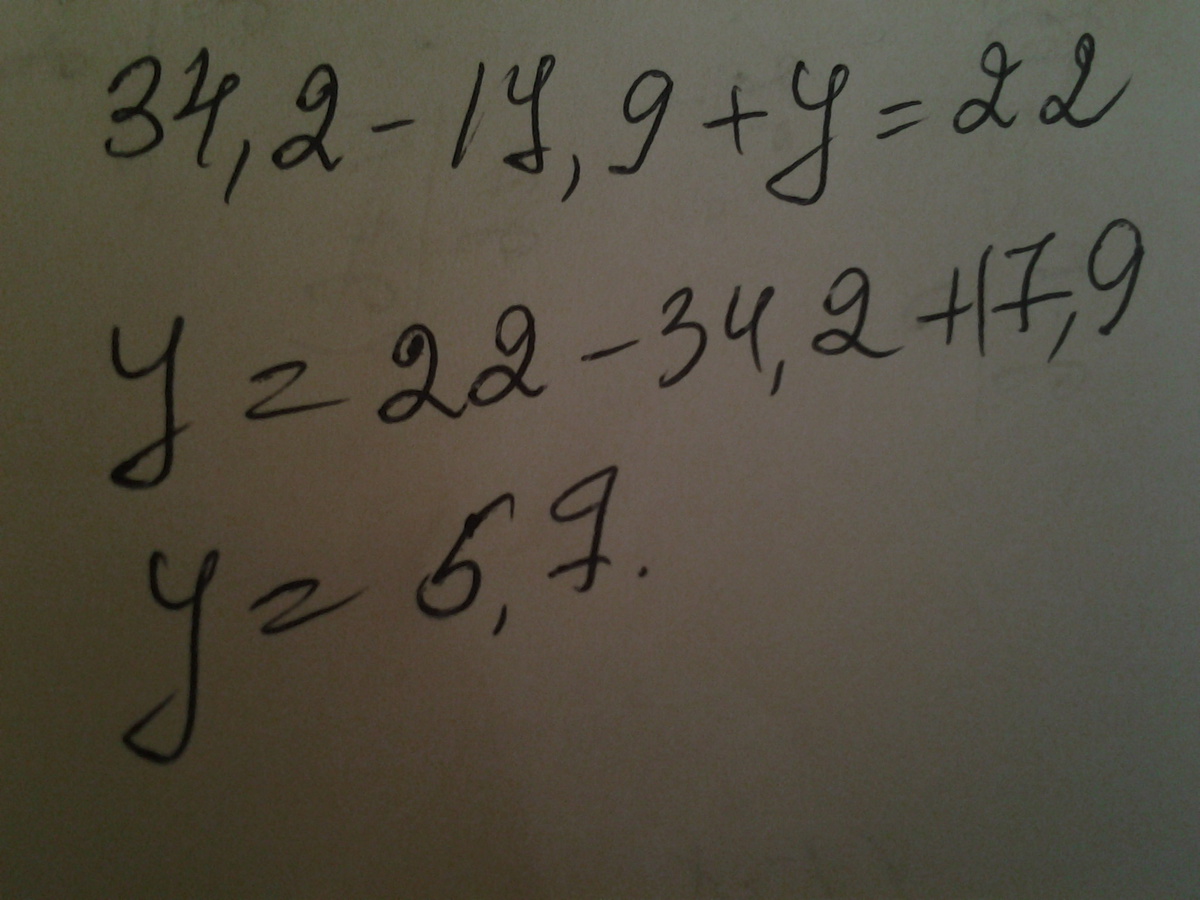 34,2 - 17,9 + y = 22
y = 22 - 34,2 + 17,9
y = 5,7.